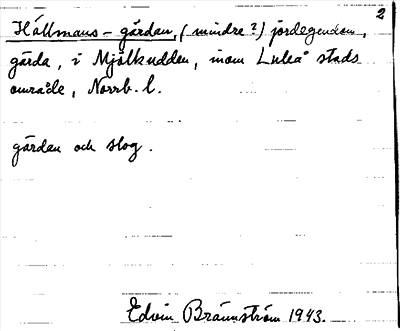 2
Hållmans-gärdan, (mindre?) jordegendom,
gärda, i Mjölkudden, inom Luleå stads
område, Norrb. l.
gärdan och slog.
Edvin Brännström 1943.